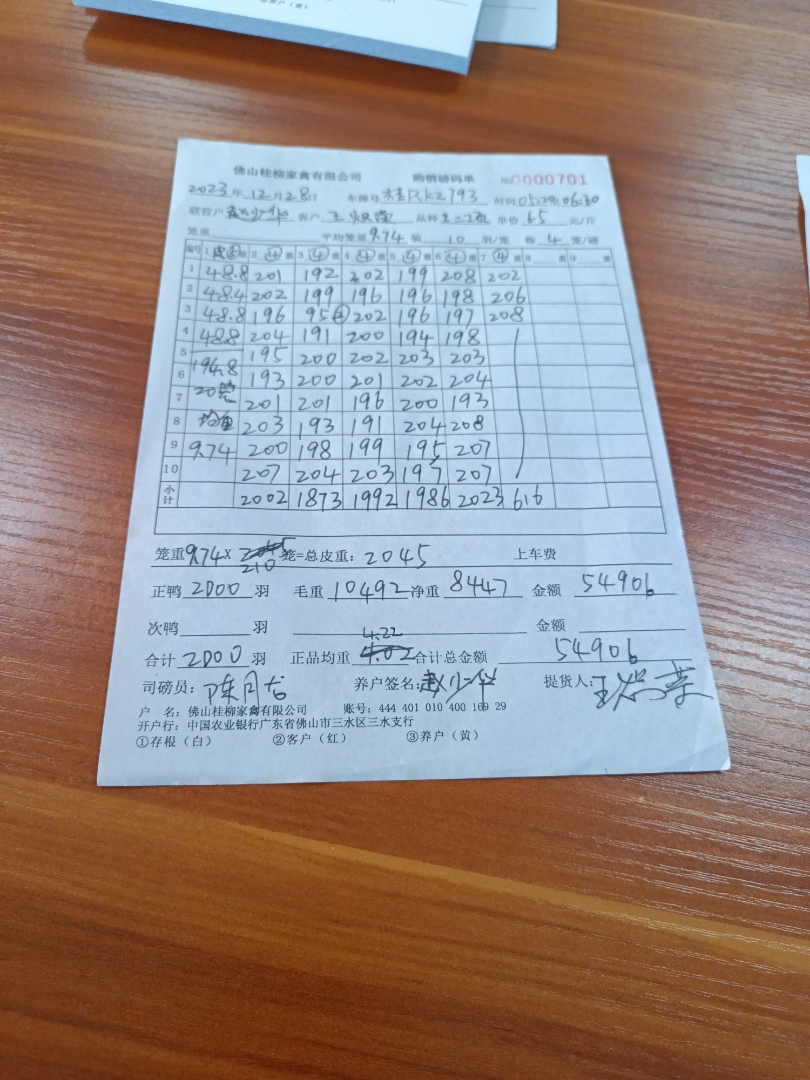 佛山桂柳家禽有限公司 购销磅码单 NO 0000701
2023年12月28日 车牌号 桂RK2793 时间 05:29:06:30
联营户 赵少华 客户 品种 单价 6.5 元/斤
笼重 平均笼重 9.74 装 10 羽/笼 称 4 笼/磅
编号 1 皮④重 2 ④ 重 3 ④ 重 4 ④ 重 5 ④ 重 6 ④ 重 7 ④ 重 8 重 9 重
1 48.8 201 192 202 199 208 202
2 48.4 202 199 196 196 198 206
3 48.8 196 95② 202 196 197 208
4 48.8 204 191 200 194 198
5 195 200 202 203 203
194.8
6 193 200 201 202 204
20笼
7 201 201 196 200 193
8 均重 203 193 191 204 208
9 9.74 200 198 199 195 207
10 207 204 203 197 207
小计 2002 1873 1992 1986 2023 616
笼重 9.74 × 210 笼=总皮重: 2045 上车费
正鸭 2000 羽 毛重 10492 净重 8447 金额 54906
次鸭 羽 金额
4.22
合计 2000 羽 正品均重 4.02 合计总金额 54906
司磅员: 养户签名: 赵少华 提货人:
户 名: 佛山桂柳家禽有限公司 账号: 444 401 010 400 169 29
开户行: 中国农业银行广东省佛山市三水区三水支行
①存根（白） ②客户（红） ③养户（黄）